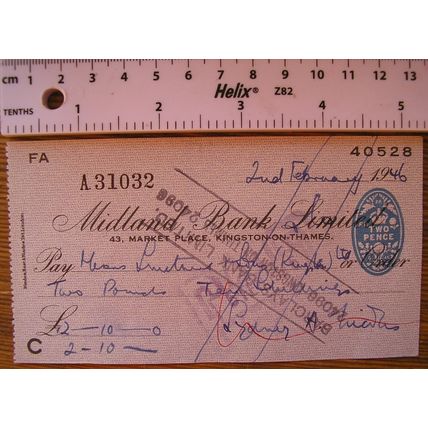 cm 1 2 3 4 5 6 7 8 9 10 11 12 13
Helix® Z82
TENTHS 1 2 3 4 5
FA 40528
A31032 2nd February 1946
Midland Bank Limited
43, MARKET PLACE, KINGSTON-ON-THAMES.
TWO PENCE
Pay Messrs Ltd or Order
Two Pounds Ten
£2-10-0
C 2-10-
Sydney A.